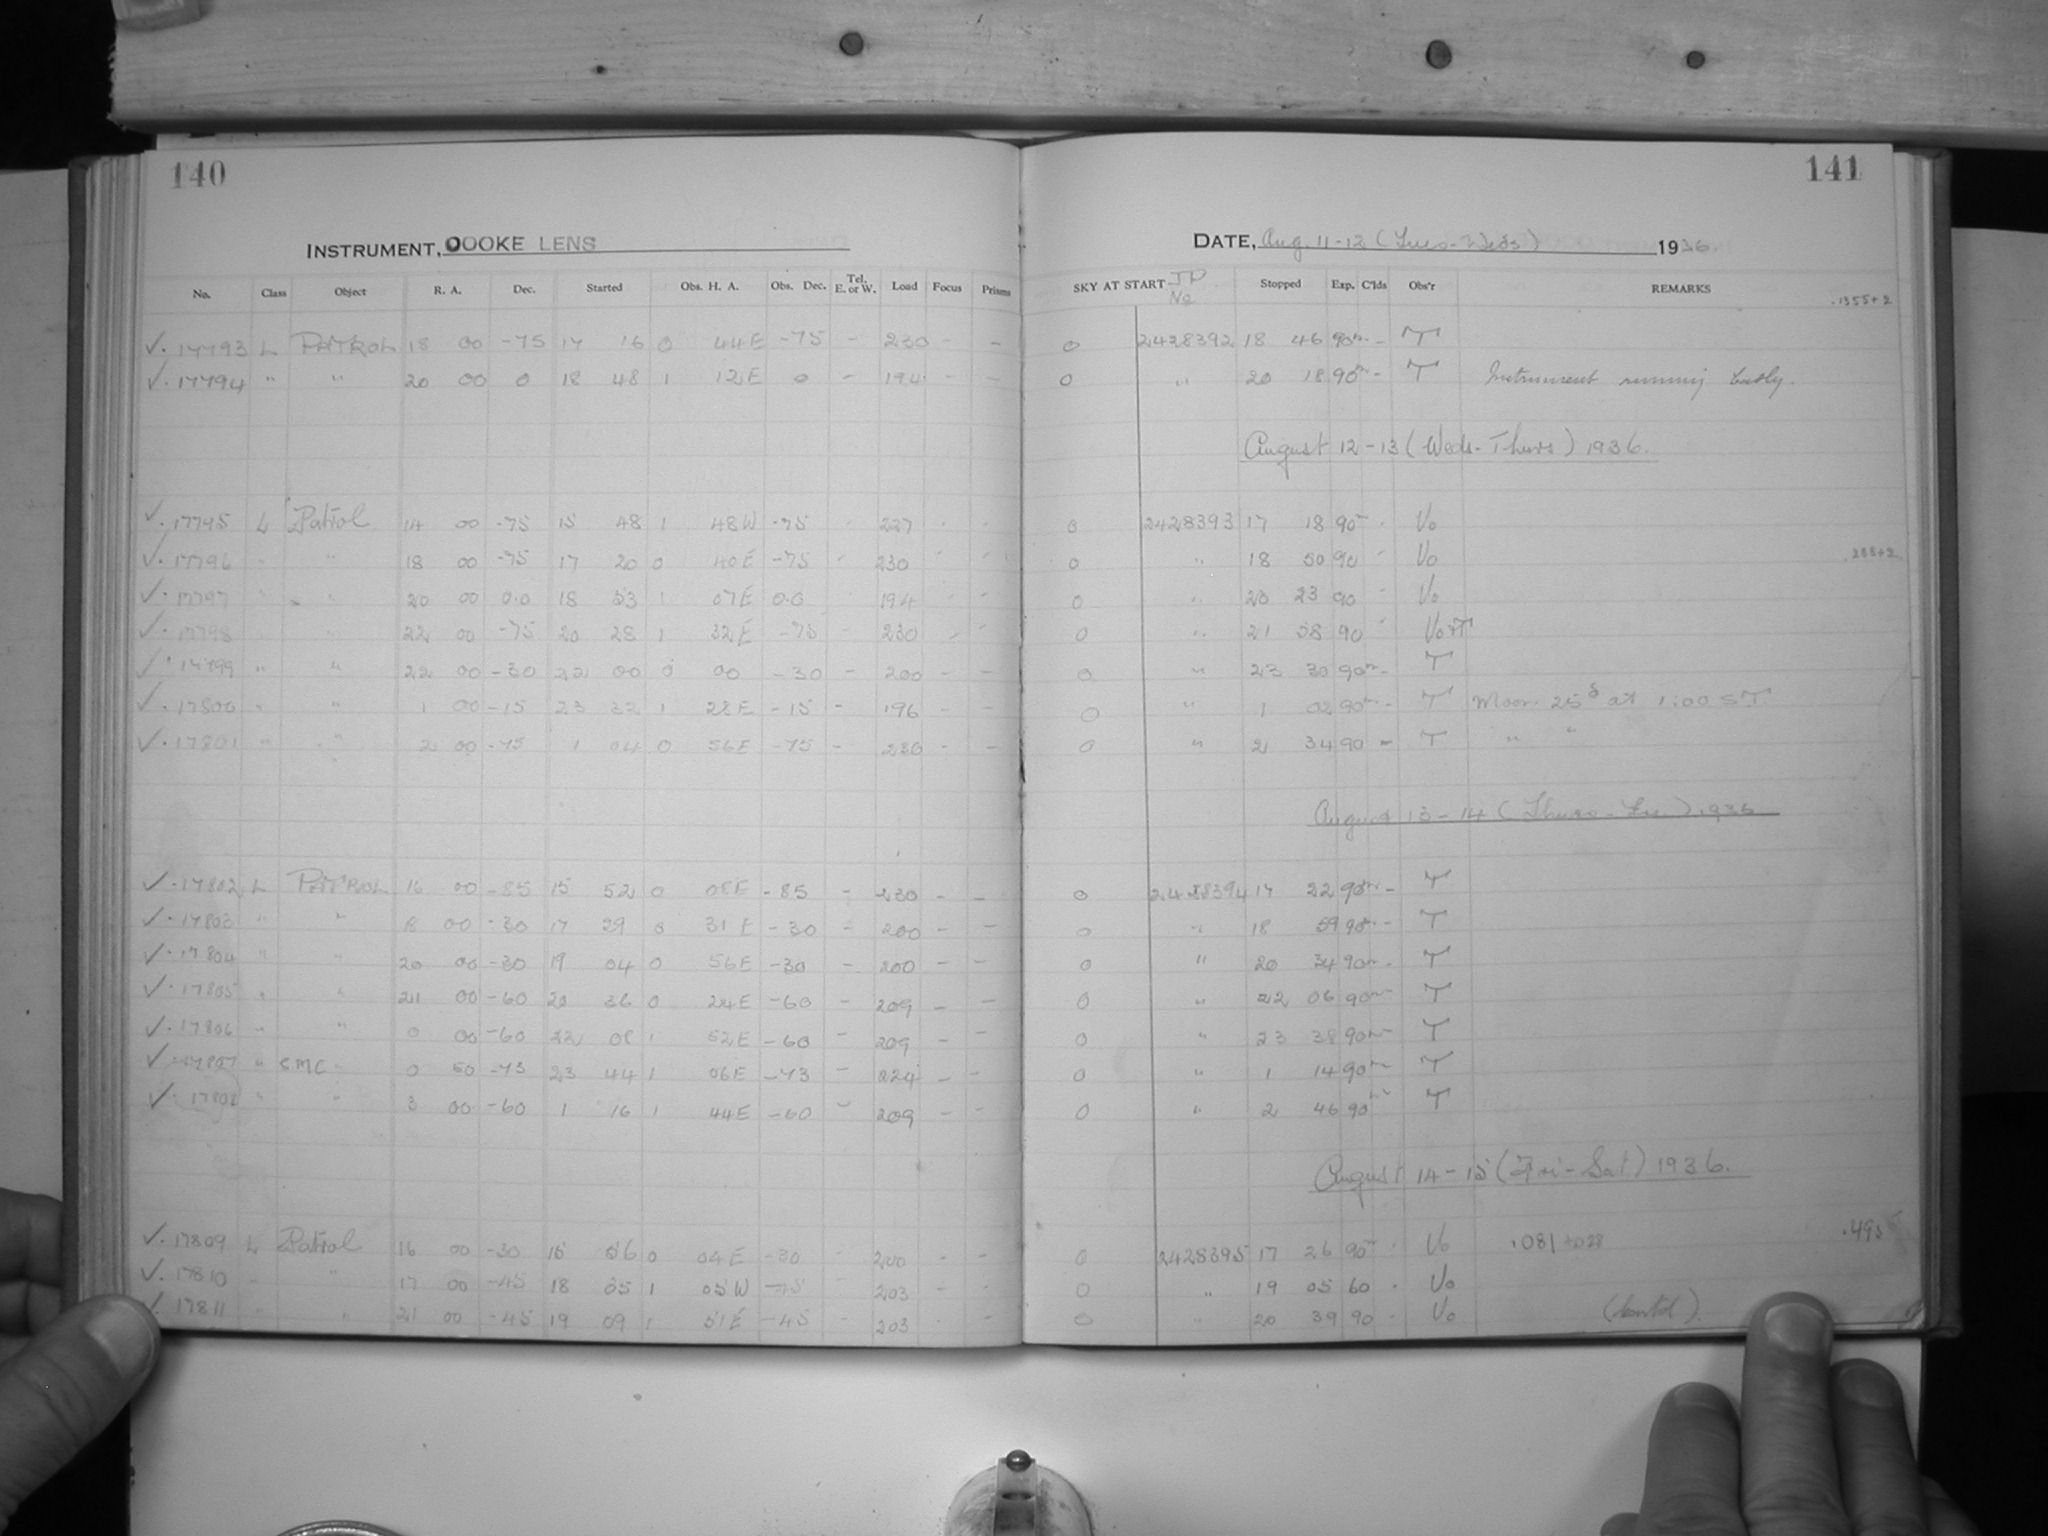 140
INSTRUMENT, COOKE LENS
No. Class Object R. A. Dec. Started Obs. H. A. Obs. Dec. Tel. E. or W. Load Focus Prisms
✓. 17793 L PATROL 18 00 -75 17 16 0 44E -75 - 230 - -
✓. 17794 " " 20 00 0 18 48 1 12E 0 - 194 - -
✓. 17795 L Patrol 14 00 -75 15 48 1 48W -75 - 227 - -
✓. 17796 " " 18 00 -75 17 20 0 40E -75 - 230 - -
✓. 17797 " " 20 00 0.0 18 53 1 07E 0.0 194 - -
✓. 17798 " " 22 00 -75 20 28 1 32E -75 230 - -
✓. 17799 " " 22 00 -30 22 00 0 00 -30 - 200 - -
✓. 17800 " " 1 00 -15 23 32 1 28E -15 - 196 - -
✓. 17801 " " 2 00 -75 1 04 0 56E -75 - 230 - -
✓. 17802 L PATROL 16 00 -85 15 52 0 08E -85 - 230 - -
✓. 17803 " " 18 00 -30 17 29 0 31E -30 - 200 - -
✓. 17804 " " 20 00 -30 19 04 0 56E -30 - 200 - -
✓. 17805 " " 21 00 -60 20 36 0 24E -60 - 209 - -
✓. 17806 " " 0 00 -60 22 08 1 52E -60 - 209 -
✓. 17807 " S.M.C. 0 50 -73 23 44 1 06E -73 - 224 - -
✓. 17808 " " 3 00 -60 1 16 1 44E -60 - 209 - -
✓. 17809 L Patrol 16 00 -30 15 56 0 04E -30 200
✓. 17810 " " 17 00 -45 18 05 1 05W -45 203
✓. 17811 " " 21 00 -45 19 09 1 51E -45 203
141
DATE, Aug. 11-12 (Tues-Weds) 1936.
SKY AT START JD No Stopped Exp. C'lds Obs'r REMARKS
.1355+2
0 2428392 18 46 90m - T
0 " 20 18 90m - T Instrument running badly.
August 12-13 (Weds-Thurs) 1936.
0 2428393 17 18 90m - Vo
0 " 18 50 90 - Vo
0 " 20 23 90 - Vo
0 " 21 58 90 - Vo+T
0 " 23 30 90m - T
0 " 1 02 90m - T Moon 25d at 1:00 ST
0 " 2 34 90 - T " "
August 13-14 (Thurs-Fri) 1936
0 2428394 17 22 90m - T
0 " 18 59 90m - T
0 " 20 34 90m - T
0 " 22 06 90m - T
0 " 23 38 90m - T
0 " 1 14 90m - T
0 " 2 46 90m - T
August 14-15 (Fri-Sat) 1936.
0 2428395 17 26 90m - Vo .081 +028
0 " 19 05 60 - Vo
0 " 20 39 90 - Vo (Contd).